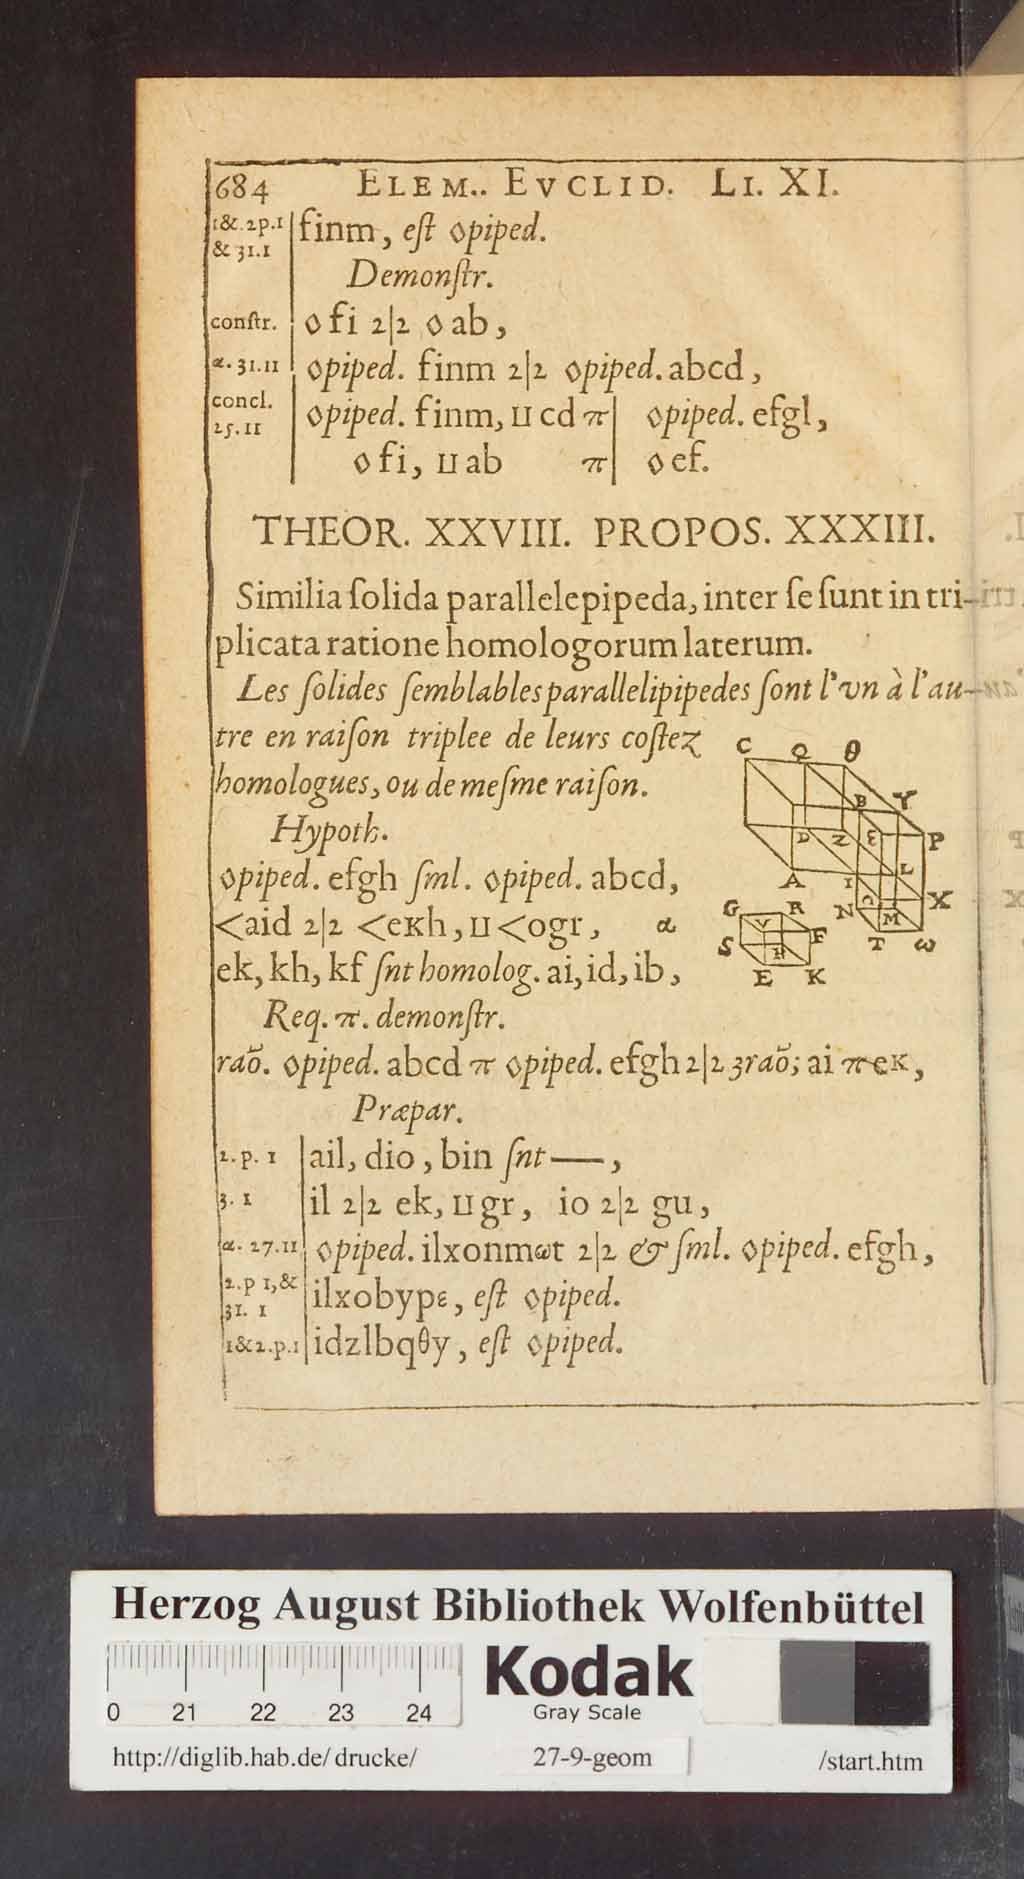 684 ELEM.. EVCLID. LI. XI.
1&.2p.1 finm, eſt ◊piped.
& 31.1
Demonſtr.
conſtr. ◊ fi 2|2 ◊ ab,
α. 31.11 ◊piped. finm 2|2 ◊piped. abcd,
concl. ◊piped. finm, ⊔ cd π| ◊piped. efgl,
25.11
◊ fi, ⊔ ab π| ◊ ef.
THEOR. XXVIII. PROPOS. XXXIII.
Similia ſolida parallelepipeda, inter ſe ſunt in tri-
plicata ratione homologorum laterum.
Les ſolides ſemblables parallelipipedes ſont l'vn à l'au-
tre en raiſon triplee de leurs coſtez
homologues, ou de meſme raiſon.
Hypoth.
◊piped. efgh ſml. ◊piped. abcd,
<aid 2|2 <eκh, ⊔ <ogr, α
ek, kh, kf ſnt homolog. ai, id, ib,
Req. π. demonſtr.
raõ. ◊piped. abcd π ◊piped. efgh 2|2 3raõ; ai π eκ,
Præpar.
2. p. 1 ail, dio, bin ſnt —,
3. 1 il 2|2 ek, ⊔ gr, io 2|2 gu,
α. 27.11 ◊piped. ilxonmωt 2|2 & ſml. ◊piped. efgh,
2.p 1,& ilxobypε, eſt ◊piped.
31. 1
1&2.p.1 idzlbqθy, eſt ◊piped.
C Q θ
B Y
D Z ε P
A I L
N Ω M X
T ω
G R
V F
S H
E K
Herzog August Bibliothek Wolfenbüttel
Kodak
Gray Scale
0 21 22 23 24
http://diglib.hab.de/drucke/ 27-9-geom /start.htm